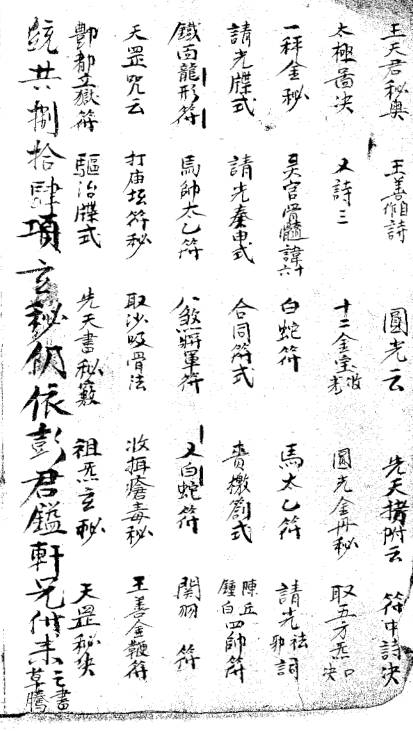 王天君秘奧 王善俏詩 圓光云 先天揹附云 符中詩决
太極啚决 又詩三 十二金宝 圓光金丹秘 取五方炁 口决
一秤金秘 灵官骨髓諱六十 白蛇符 馬太乙符 請光 祛邪 詞
請光牒式 請光奏申式 合同符式 賫檄劄式 陳丘鍾白四帥符
鐵面龍形符 馬帥太乙符 八煞將軍符 又白蛇符 関羽符
天罡咒云 打庙坛符秘 取沙吸骨法 收瘡毒秘 王善金鞭符
酆都五嶽符 驅治牒式 先天書秘竅 祖炁玄秘 天罡秘失
統共捌拾肆項玄秘仍依彭君鎰軒兄付来之書草騰